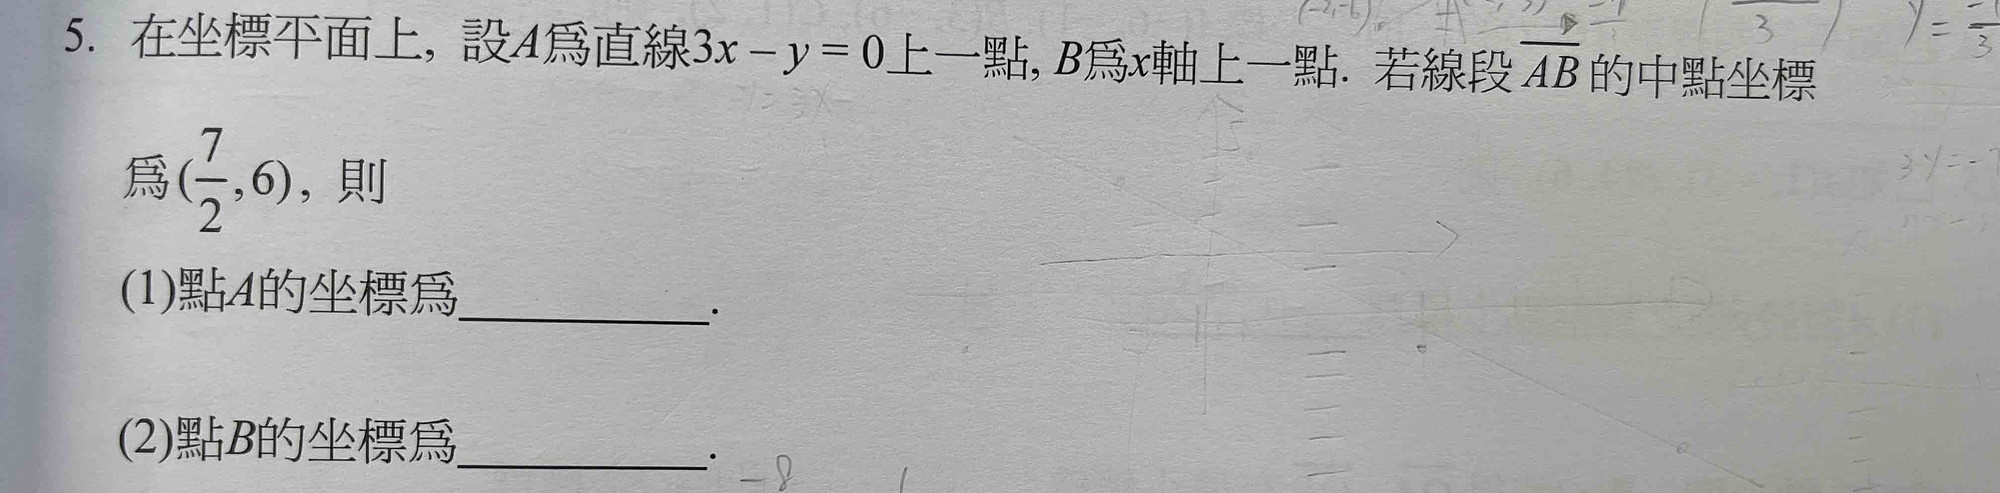 5. 在坐標平面上, 設A爲直線3x – y = 0上一點, B爲x軸上一點. 若線段 \overline{AB} 的中點坐標
爲(\frac{7}{2}, 6), 則
(1)點A的坐標爲__________.
(2)點B的坐標爲__________.
-8